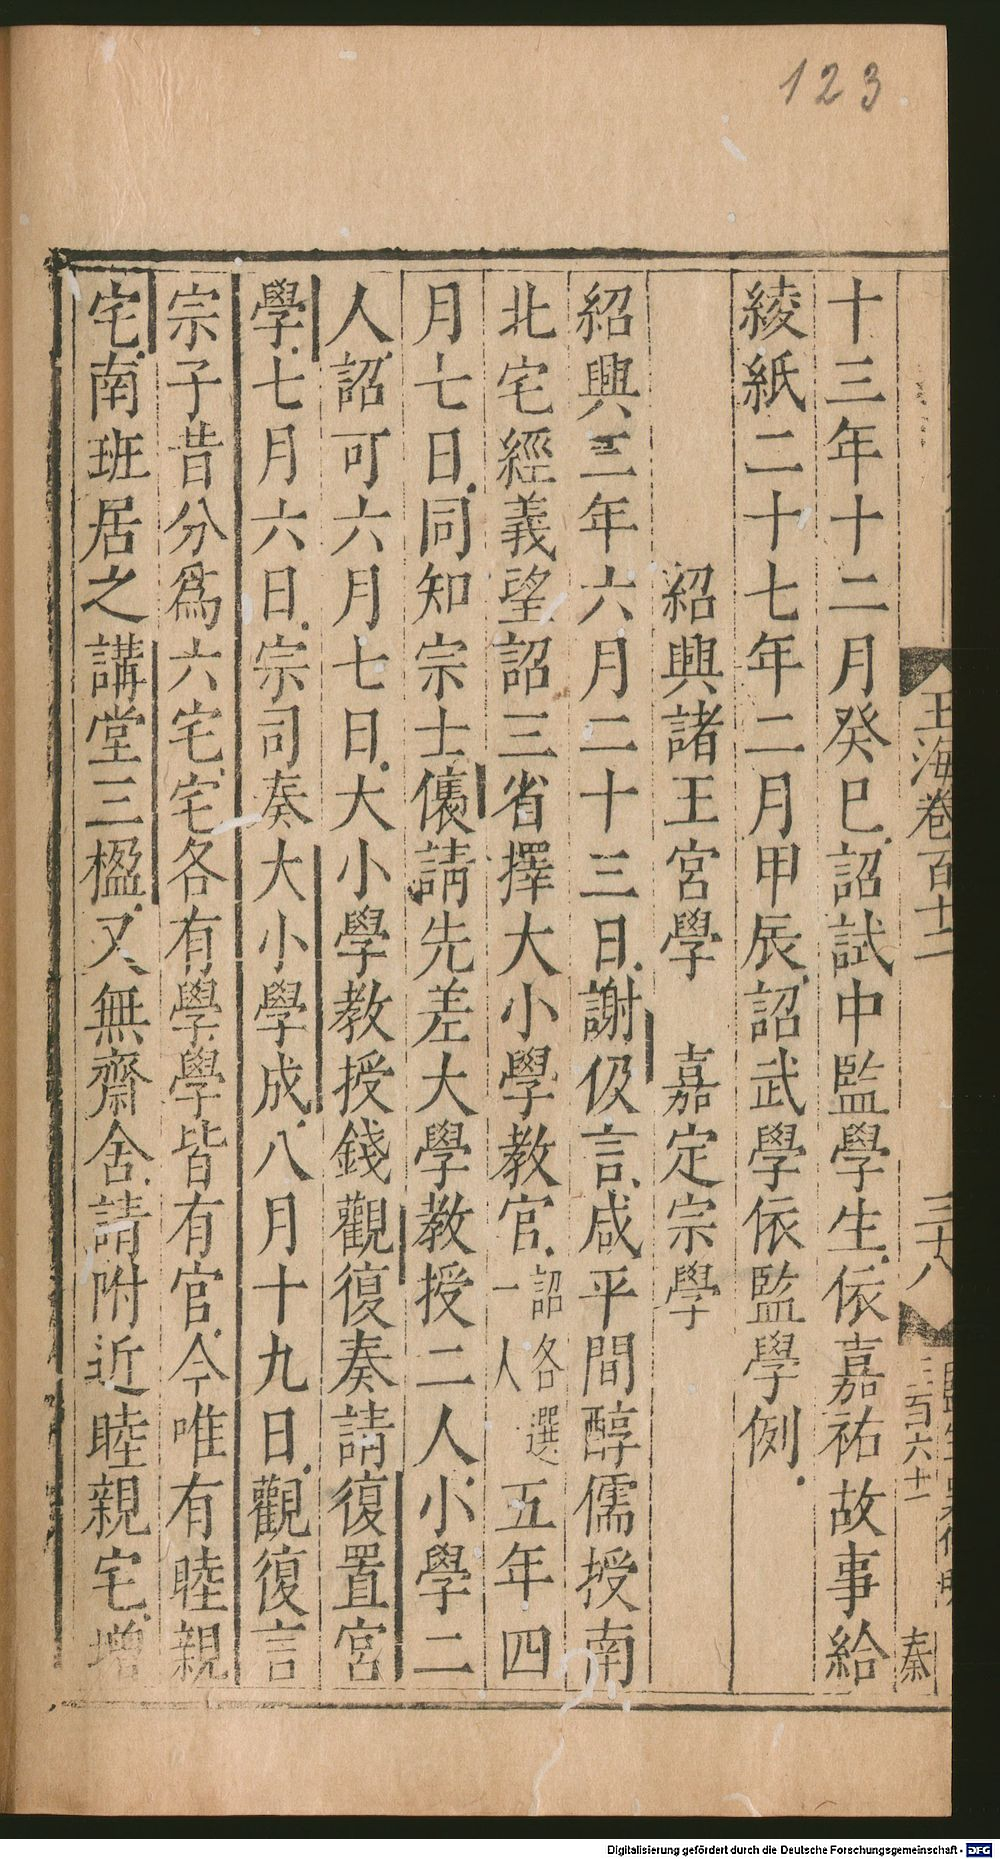 123
玉海卷百十二
三十八
三百六十一
秦
十三年十二月癸巳詔試中監學生依嘉祐故事給
綾紙二十七年二月甲辰詔武學依監學例
紹興諸王宮學 嘉定宗學
紹興三年六月二十三日謝伋言咸平間醇儒授南
北宅經義望詔三省擇大小學教官詔各選一人五年四
月七日同知宗士㒟請先差大學教授二人小學二
人詔可六月七日大小學教授錢觀復奏請復置宮
學七月六日宗司奏大小學成八月十九日觀復言
宗子昔分爲六宅宅各有學學皆有官今唯有睦親
宅南班居之講堂三楹又無齋舍請附近睦親宅增
Digitalisierung gefördert durch die Deutsche Forschungsgemeinschaft - DFG